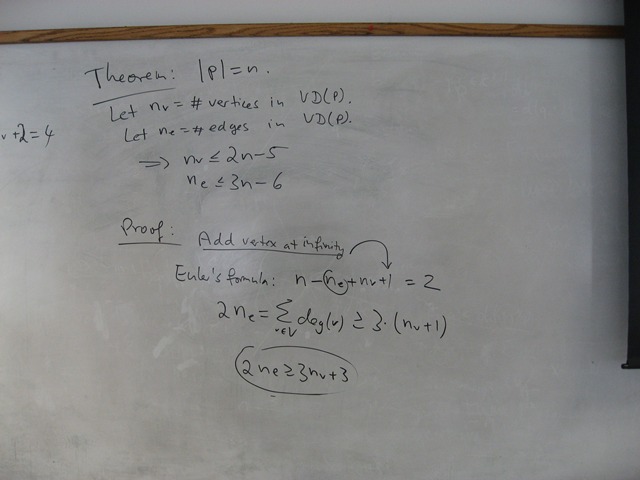 Theorem: |P| = n.
Let nv = # vertices in VD(P).
Let ne = # edges in VD(P).
v + 2 = 4
=> nv ≤ 2n - 5
ne ≤ 3n - 6
Proof: Add vertex at infinity
Euler's formula: n - ne + nv + 1 = 2
2ne = Σ v∈V deg(v) ≥ 3·(nv + 1)
2ne ≥ 3nv + 3